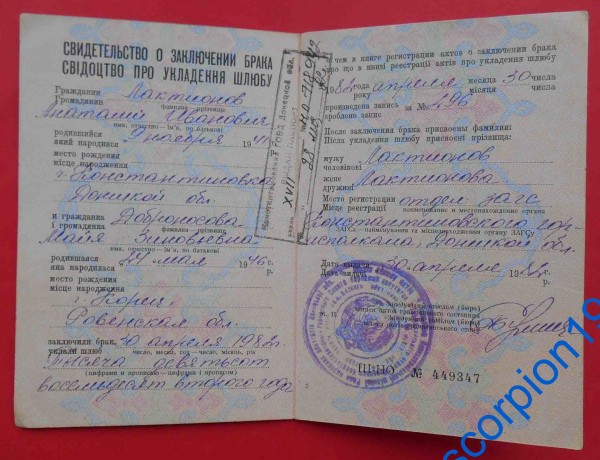 СВИДЕТЕЛЬСТВО О ЗАКЛЮЧЕНИИ БРАКА
СВІДОЦТВО ПРО УКЛАДЕННЯ ШЛЮБУ
Гражданин Лактионов
Громадянин
фамилия—прізвище
Анатолий Иванович
имя, отчество—ім'я, по батькові
родившийся 9 ноября 19
який народився
место рождения
місце народження
г. Константиновка
Донецкой обл.
и гражданка Доброносова
і громадянка
фамилия—прізвище
Майя Зиновьевна
имя, отчество—ім'я, по батькові
родившаяся 27 мая 1946 г.
яка народилася р.
место рождения
місце народження
г. Корец
Ровенская обл.
заключили брак 30 апреля 1982
уклали шлюб
число, месяц, год—число, місяць, рік
тысяча девятьсот
восемьдесят второго года
(цифрами и прописью—цифрами і прописом)
о чем в книге регистрации актов о заключении брака
про що в книзі реєстрації актів про укладення шлюбу
1982 апреля месяца 30 числа
року місяця числа
произведена запись за № 296
зроблено запис
После заключения брака присвоены фамилии:
Після укладення шлюбу присвоєні прізвища:
мужу Лактионов
чоловікові
жене Лактионова
дружині
Место регистрации отдел загс
Місце реєстрації
наименование и местонахождение органа
ЗАГСа—найменування і місцезнаходження органу ЗАГСу
Константиновского гор-
исполкома, Донецкой обл.
Дата выдачи 30 апреля 1982 г.
Дата видачі
Заведующий отделом (бюро)
записи актов гражданского состояния
Завідуючий відділом (бюро)
XVII
ІІІ-НО № 449347
scorpion19